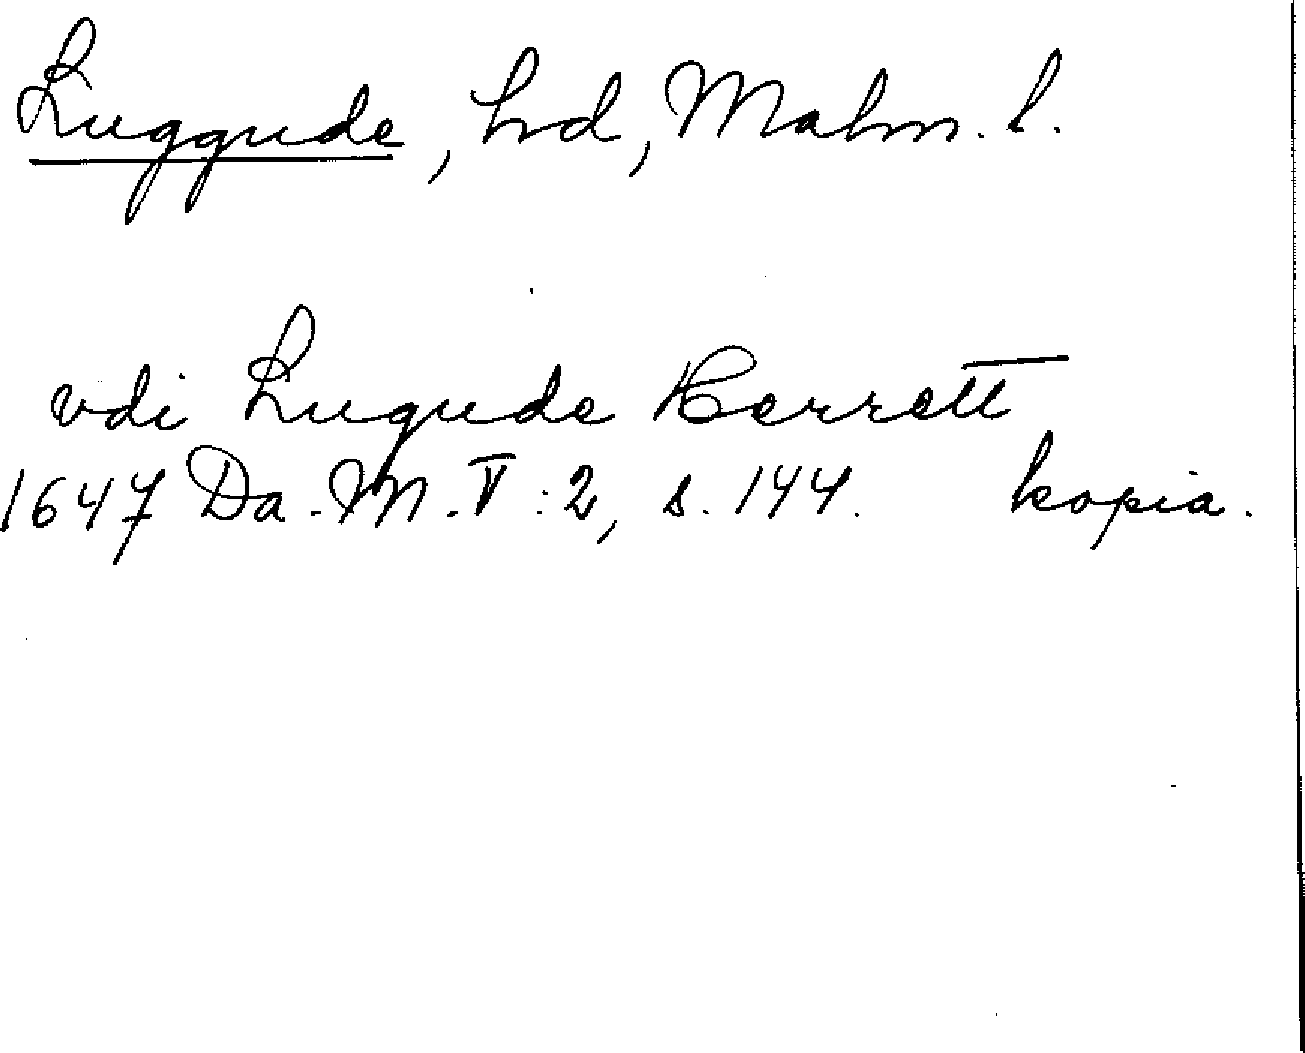 Luggude, hd, Malm. l.
vdi Lugude Herrett
1647 Da. M. V: 2, s. 144. kopia.